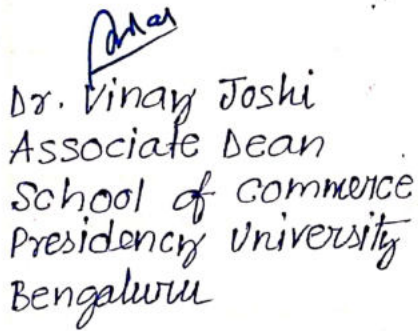 Dr. Vinay Joshi
Associate Dean
School of commerce
Presidency University
Bengaluru